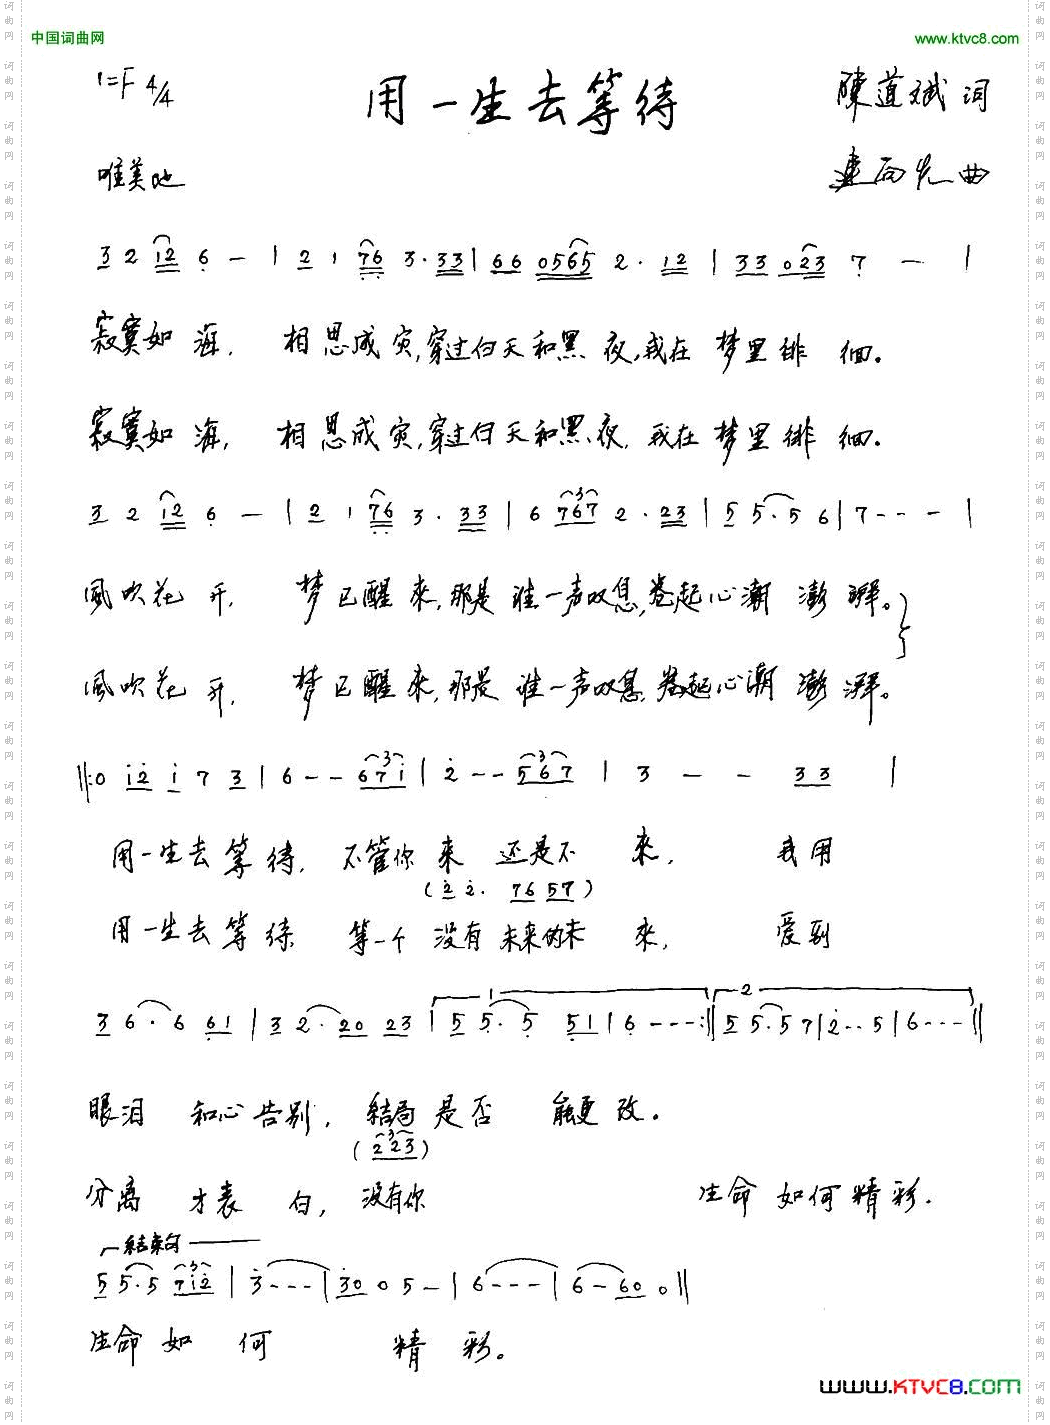 中国词曲网 www.ktvc8.com
1=F 4/4 用一生去等待 陳道斌 词
唯美地 曲
3 2 12 6 - | 2 1 76 3· 33 | 66 0565 2· 12 | 33 023 7 - |
寂寞如海, 相思成灾,穿过白天和黑夜,我在梦里徘徊。
寂寞如海, 相思成灾,穿过白天和黑夜,我在梦里徘徊。
3 2 12 6 - | 2 1 76 3· 33 | 6 767 2· 23 | 5 5·5 6 | 7 - - - |
風吹花开, 梦已醒来,那是谁一声叹息,卷起心潮澎湃。
風吹花开, 梦已醒来,那是谁一声叹息,卷起心潮澎湃。
‖:0 12 1 7 3 | 6 - - 671 | 2 - - 567 | 3 - - 33 |
用一生去等待, 不管你来还是不来, 我用
(2 2· 76 57)
用一生去等待, 等一个没有未来的未来, 爱到
3 6·6 61 | 3 2·20 23 | 1 5 5·5 51 | 6 - - - :‖ 2 5 5·5 7 | 2 - - 5 | 6 - - - ‖
眼泪和心告别, 结局是否能更改。
(2 23)
分离才表白, 没有你 生命如何精彩.
结束句
5 5·5 712 | 3 - - - | 30 0 5 - | 6 - - - | 6 - 60 0 ‖
生命如何精彩。
www.KTVC8.com